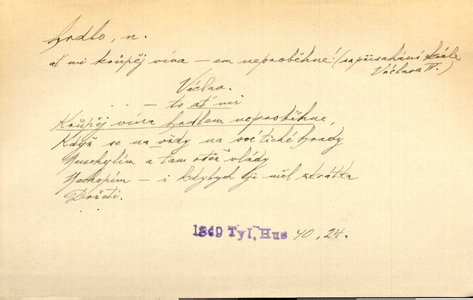 Hrdlo, n.
ať mi krůpěj vína — em neproběhne! (zapřisahání krále
Václava IV.)
Václav.
— to ať mi
Krůpěj vína hrdlem neproběhne,
Když se na vždy na své tiché hrady
Neuchýlím a tam otěž vlády
Nechopím — i kdybych ji měl zkrátka
Držeti.
1849 Tyl, Hus 40, 24.